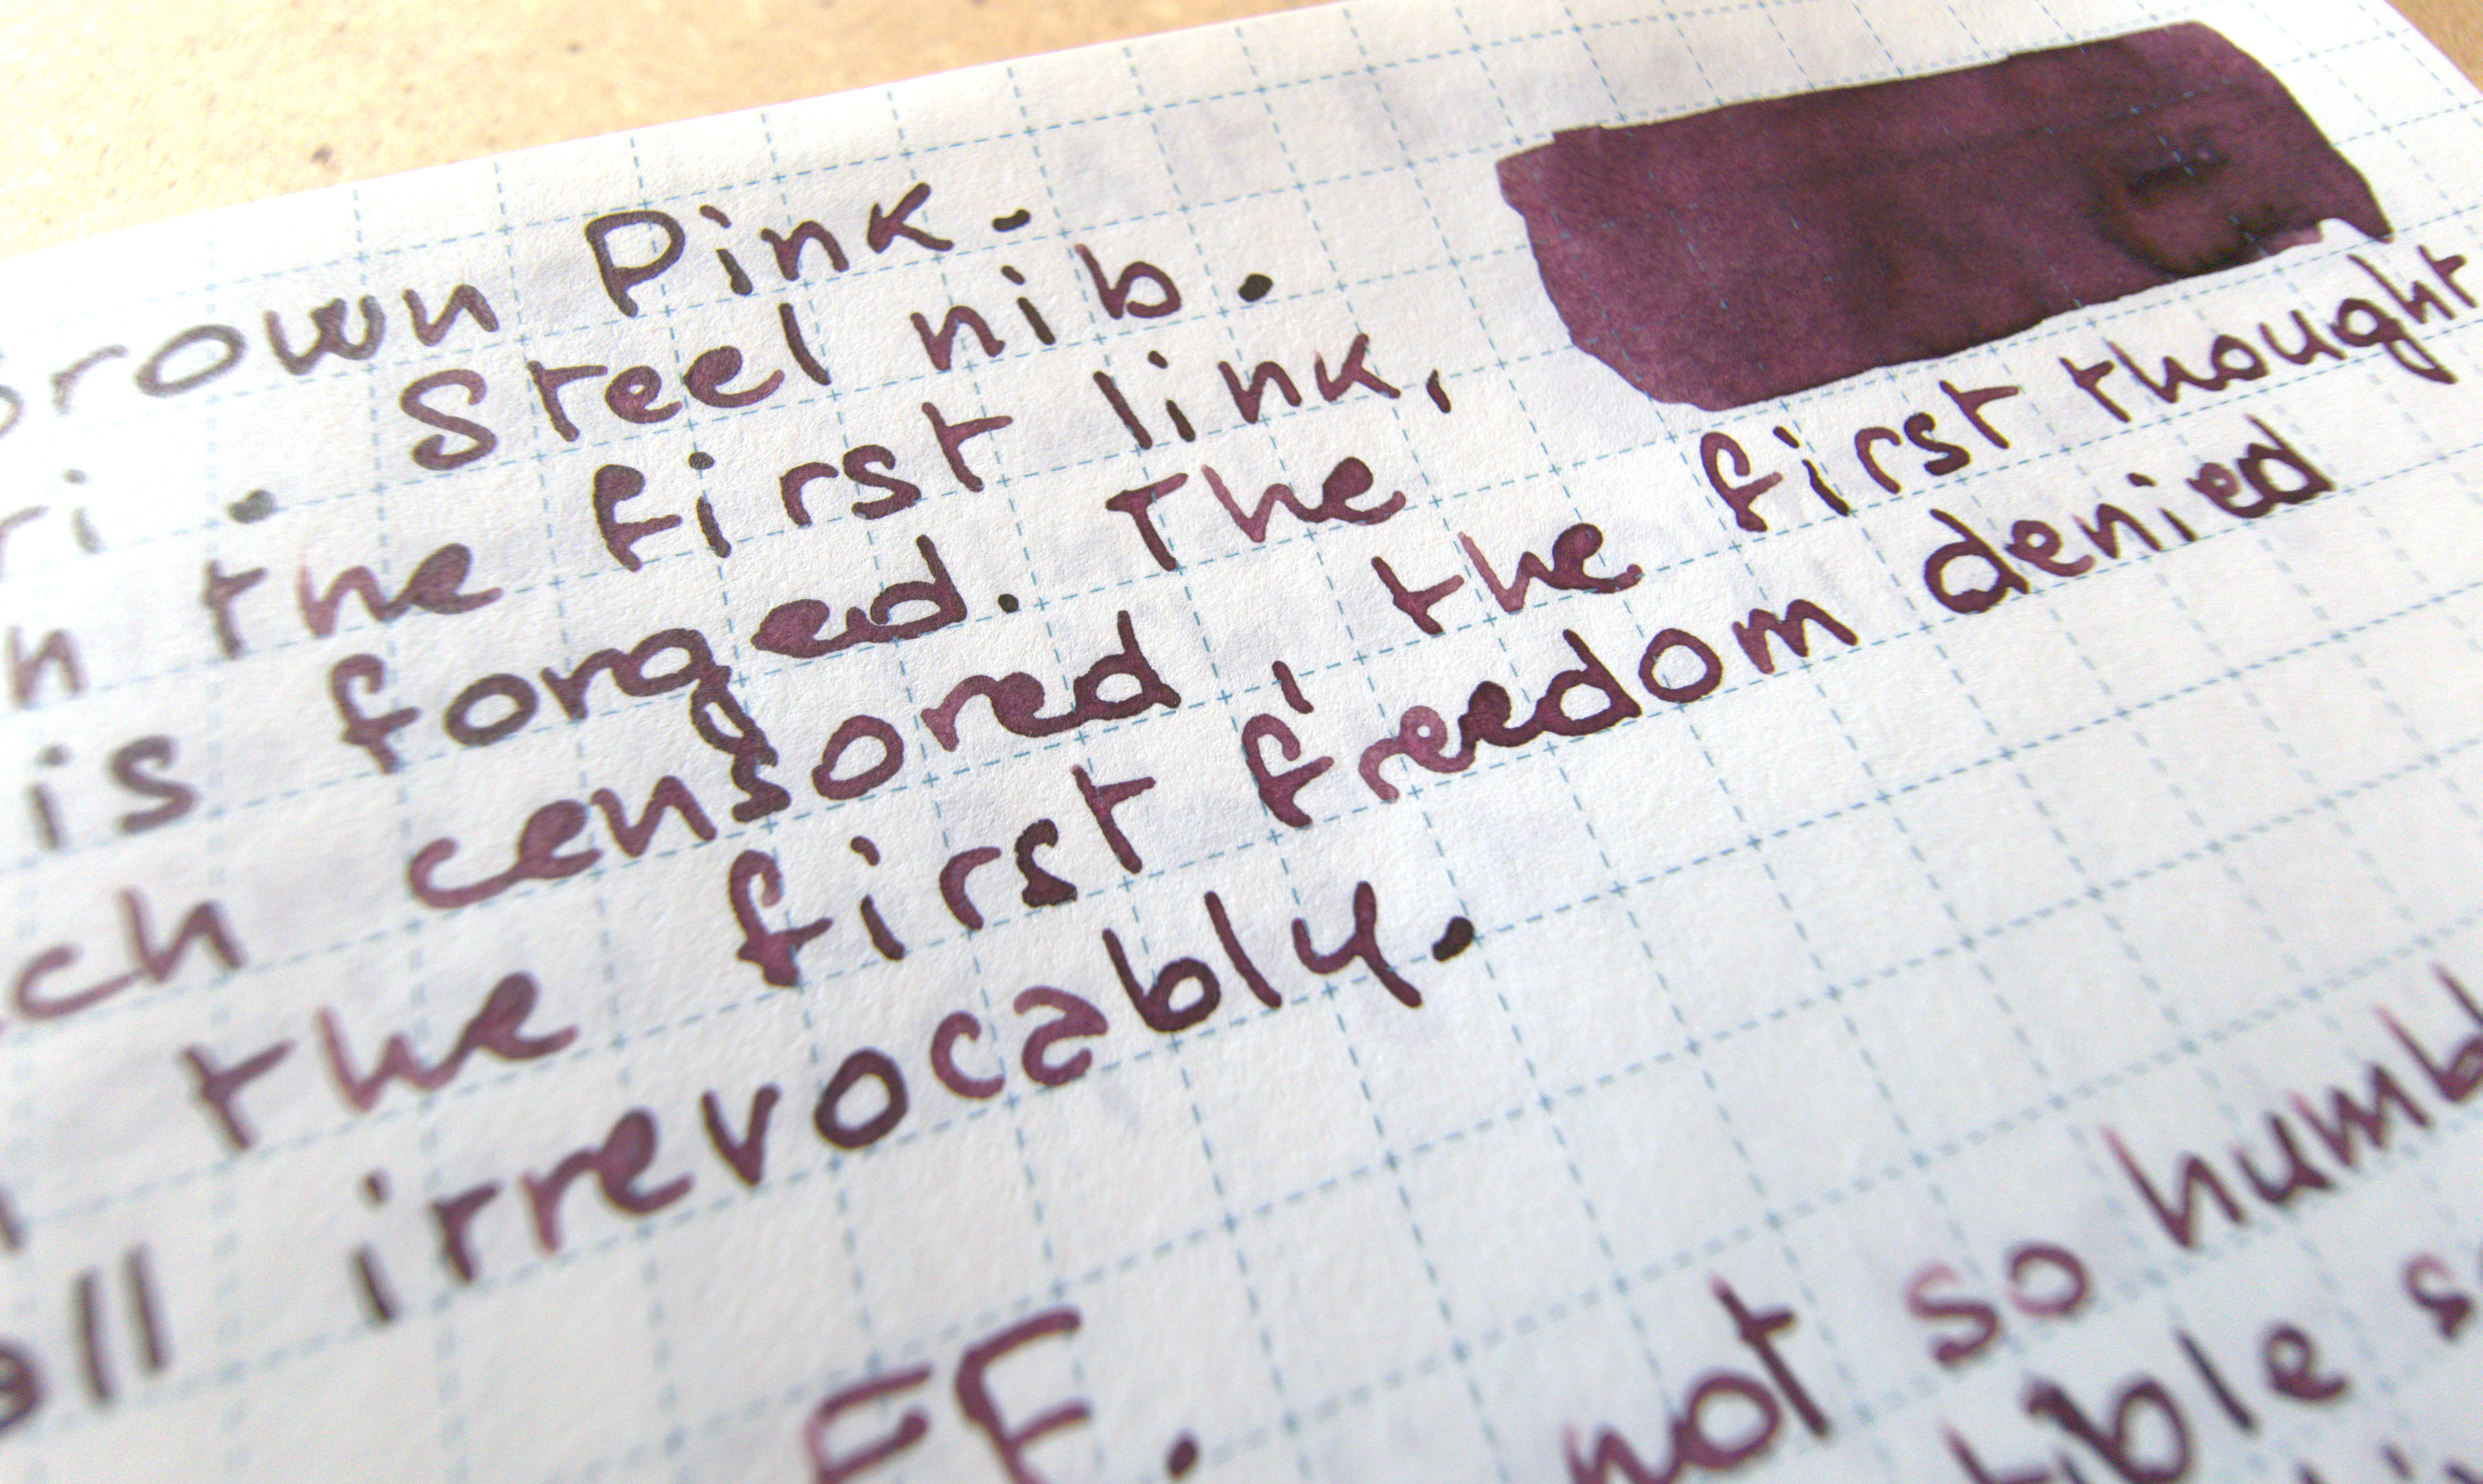 rown Pink.
ri. Steel nib.
n the first link,
is forged. The
ch censored, the first thought
the first freedom denied
ll irrevocably.
EF.
not so humb
ible s